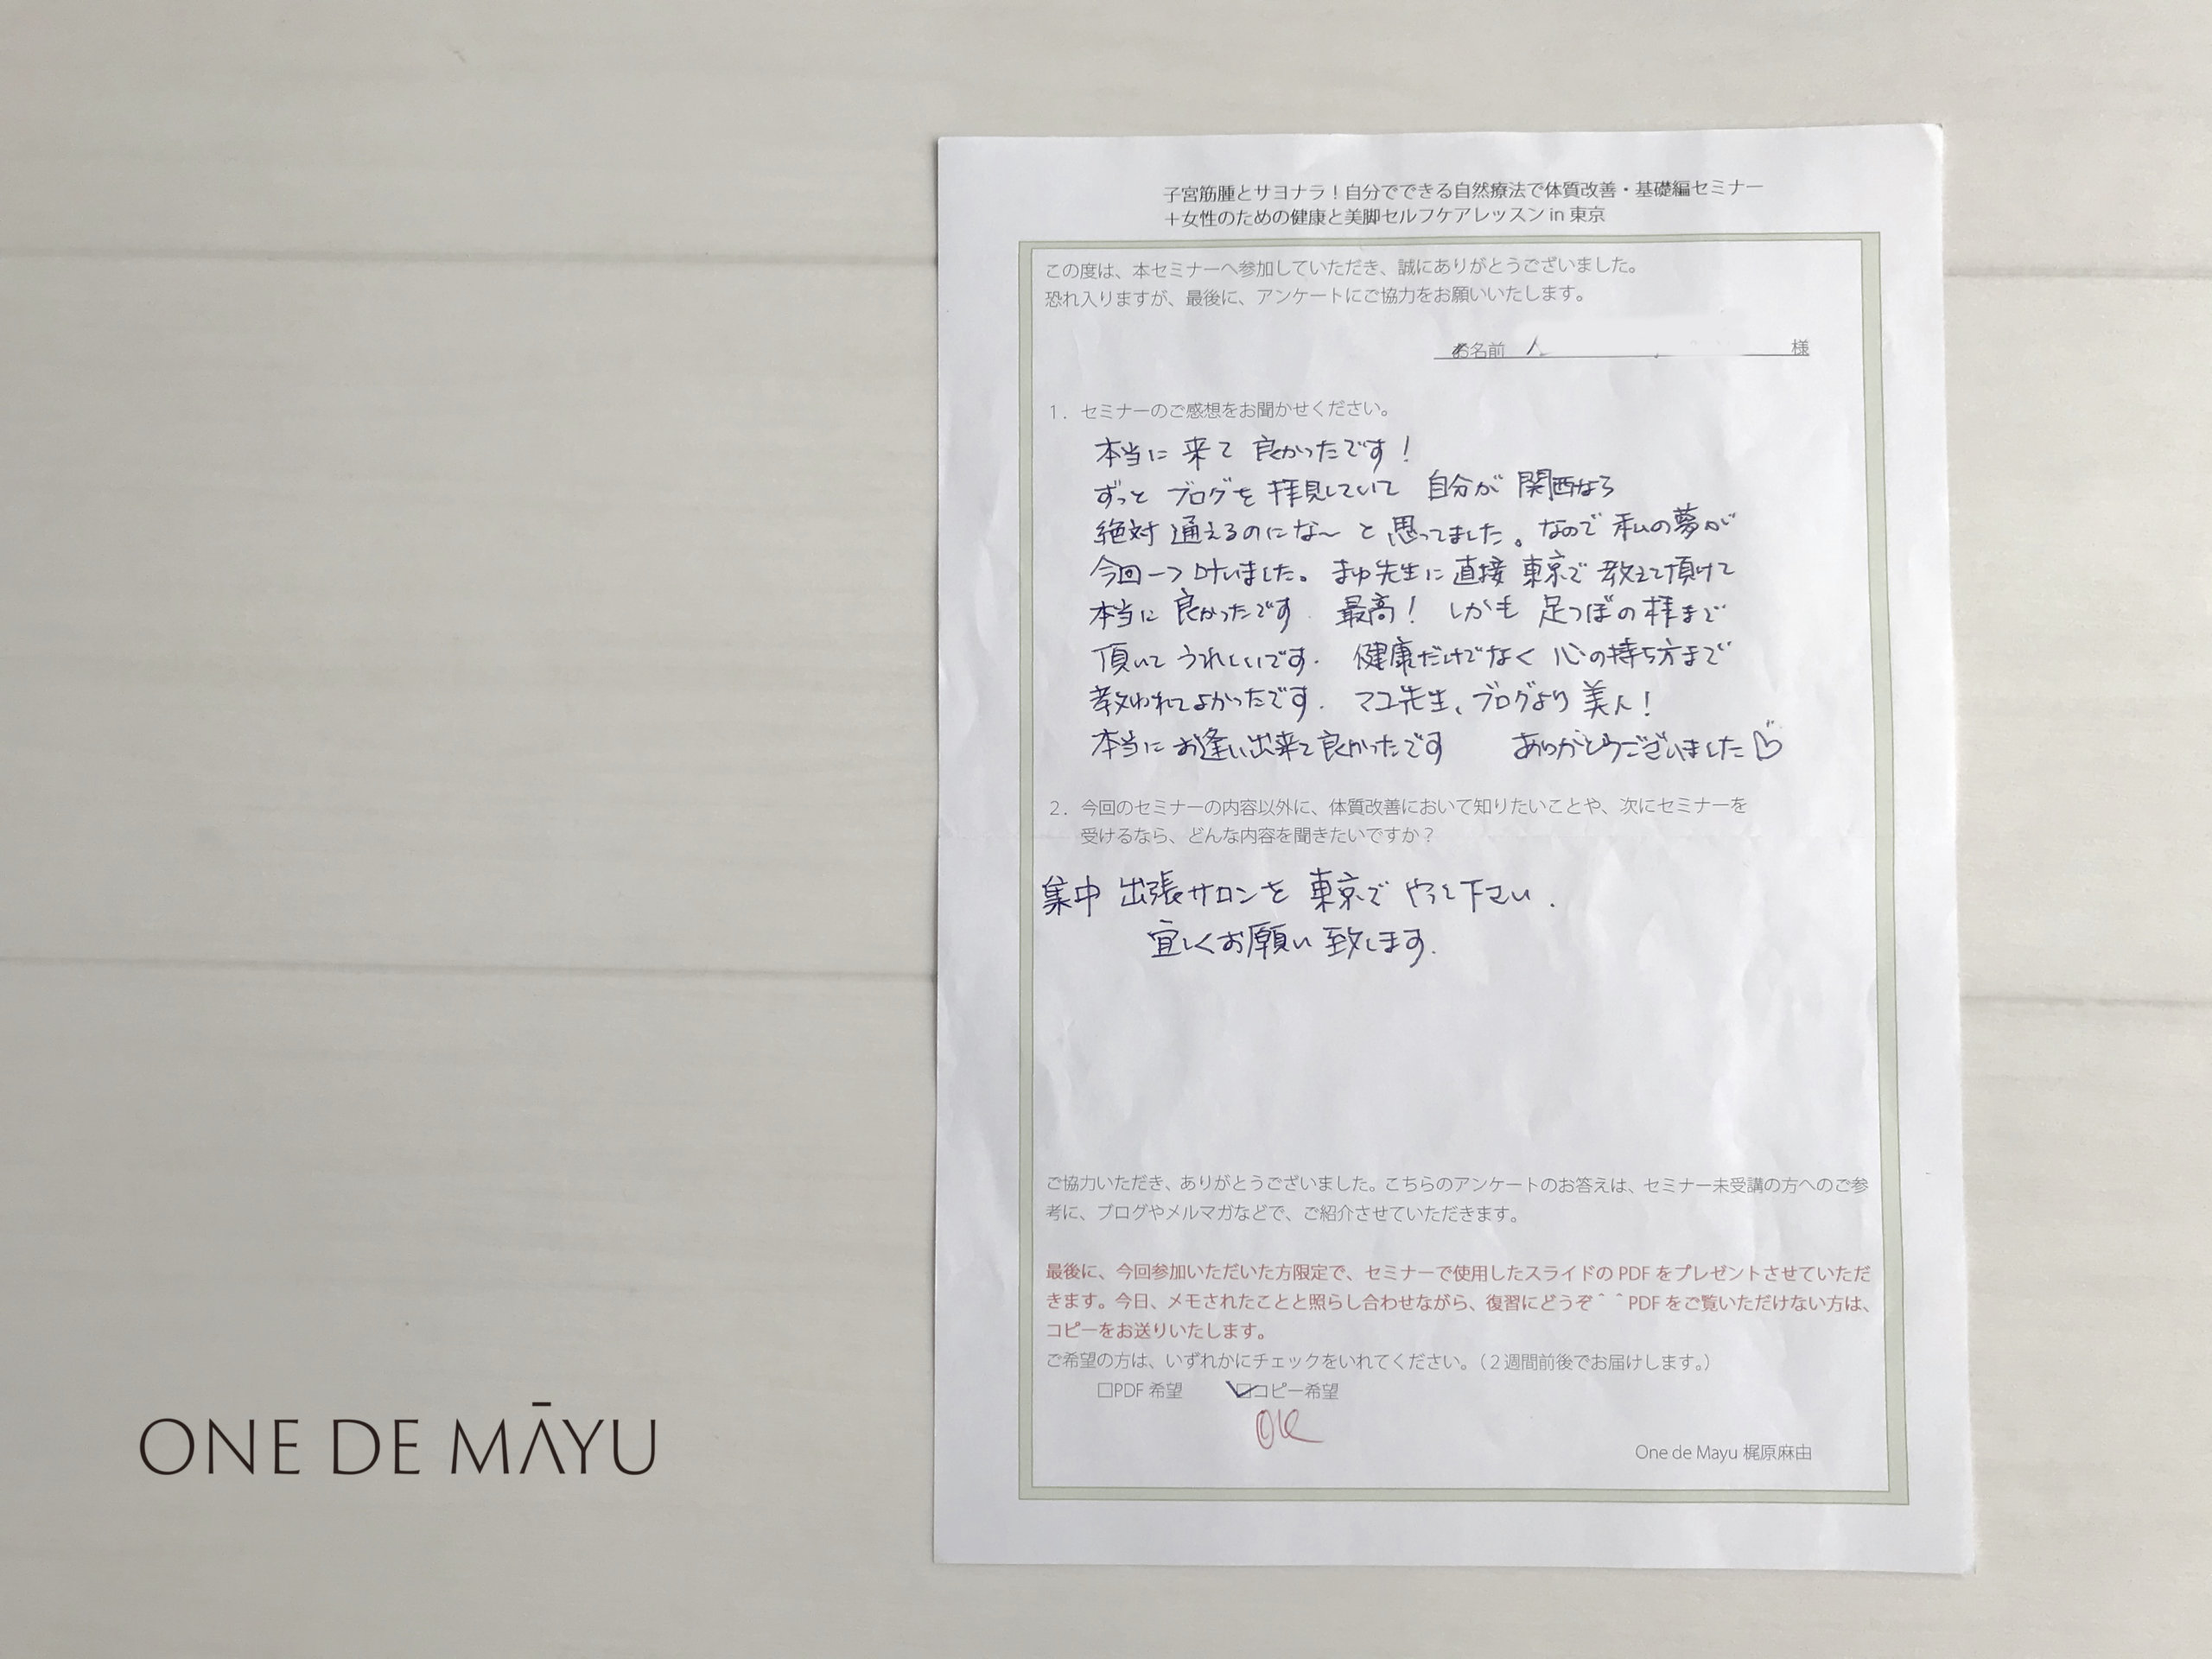 子宮筋腫とサヨナラ！自分でできる自然療法で体質改善・基礎編セミナー
＋女性のための健康と美脚セルフケアレッスン in 東京
この度は、本セミナーへ参加していただき、誠にありがとうございました。
恐れ入りますが、最後に、アンケートにご協力をお願いいたします。
お名前 様
1．セミナーのご感想をお聞かせください。
本当に 来て 良かったです！
ずっと ブログを 拝見していて 自分が 関西なら
絶対 通えるのにな〜 と 思ってました。なので 私の夢が
今回一つ叶いました。まゆ先生に 直接 東京で 教えて頂けて
本当に 良かったです. 最高！ しかも 足つぼの 棒まで
頂いて うれしいです. 健康だけでなく 心の持ち方まで
教われてよかったです. マユ先生、ブログより 美人！
本当に お逢い出来て良かったです ありがとうございました♡
2．今回のセミナーの内容以外に、体質改善において知りたいことや、次にセミナーを
受けるなら、どんな内容を聞きたいですか？
集中 出張サロンを 東京で やって下さい.
宜しくお願い 致します.
ご協力いただき、ありがとうございました。こちらのアンケートのお答えは、セミナー未受講の方へのご参
考に、ブログやメルマガなどで、ご紹介させていただきます。
最後に、今回参加いただいた方限定で、セミナーで使用したスライドの PDF をプレゼントさせていただ
きます。今日、メモされたことと照らし合わせながら、復習にどうぞ＾＾PDF をご覧いただけない方は、
コピーをお送りいたします。
ご希望の方は、いずれかにチェックをいれてください。（２週間前後でお届けします。）
□PDF 希望 ☑コピー希望
OK
One de Mayu 梶原麻由
ONE DE MĀYU